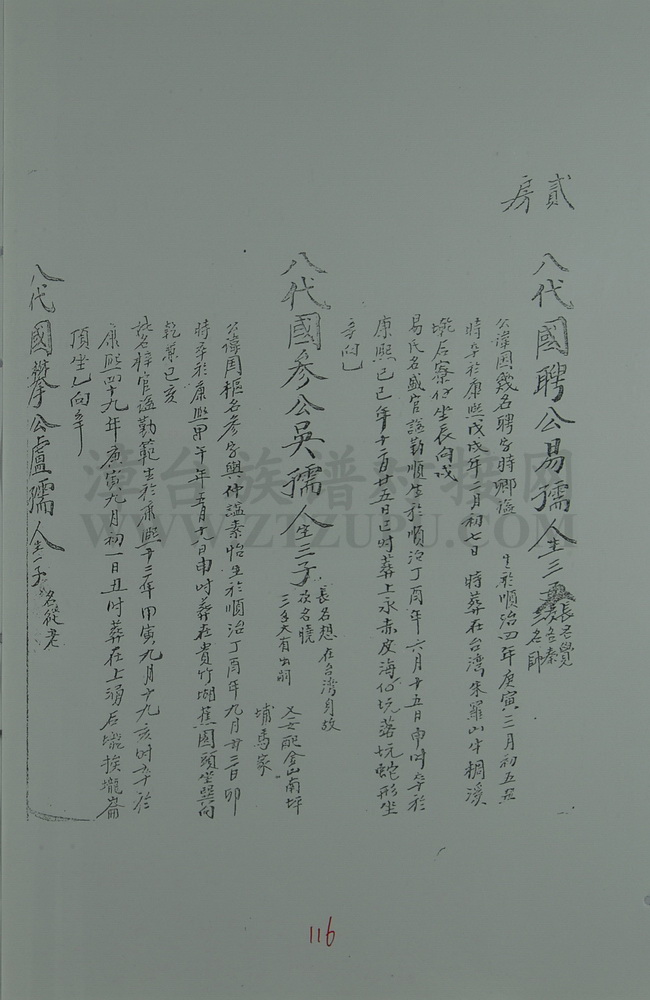 貳房
八代國聘公易孺人生三子
長名覺
次名秦
三名師
公諱国幾名聘字時卿谥 生於順治四年庚寅三月初五丑
時卒于康熙戊戌年二月初七日 時葬在台湾朱羅山牛稠溪
埯后寮仔坐辰向戌
易氏名盛官谥勤順生於順治丁酉年六月十五日申时卒於
康熙己巳年十二月廿五日巳时葬上永赤皮海仙坑落坑蛇形坐
辛向乙
八代國参公吳孺人生三子
長名想 在台湾身故
次名曉
三子大有出嗣
又女配金山南坪
埔馬家
公諱国樞名参字興仲谥素怡生於順治丁酉年九月廿三日卯
時卒於康熙甲午年五月十八日申时葬在貴竹坳蕉園頭坐巽向
乾兼巳亥
妣名梓官谥勤範生於康熙十三年甲寅九月十九亥时卒於
康熙四十九年庚寅九月初一日丑时葬在上湧后壠挨壠崙
頂坐乙向辛
八代國攀公盧孺人生一子
名從老
漳台族谱对接网
WWW.ZTZUPU.COM
116